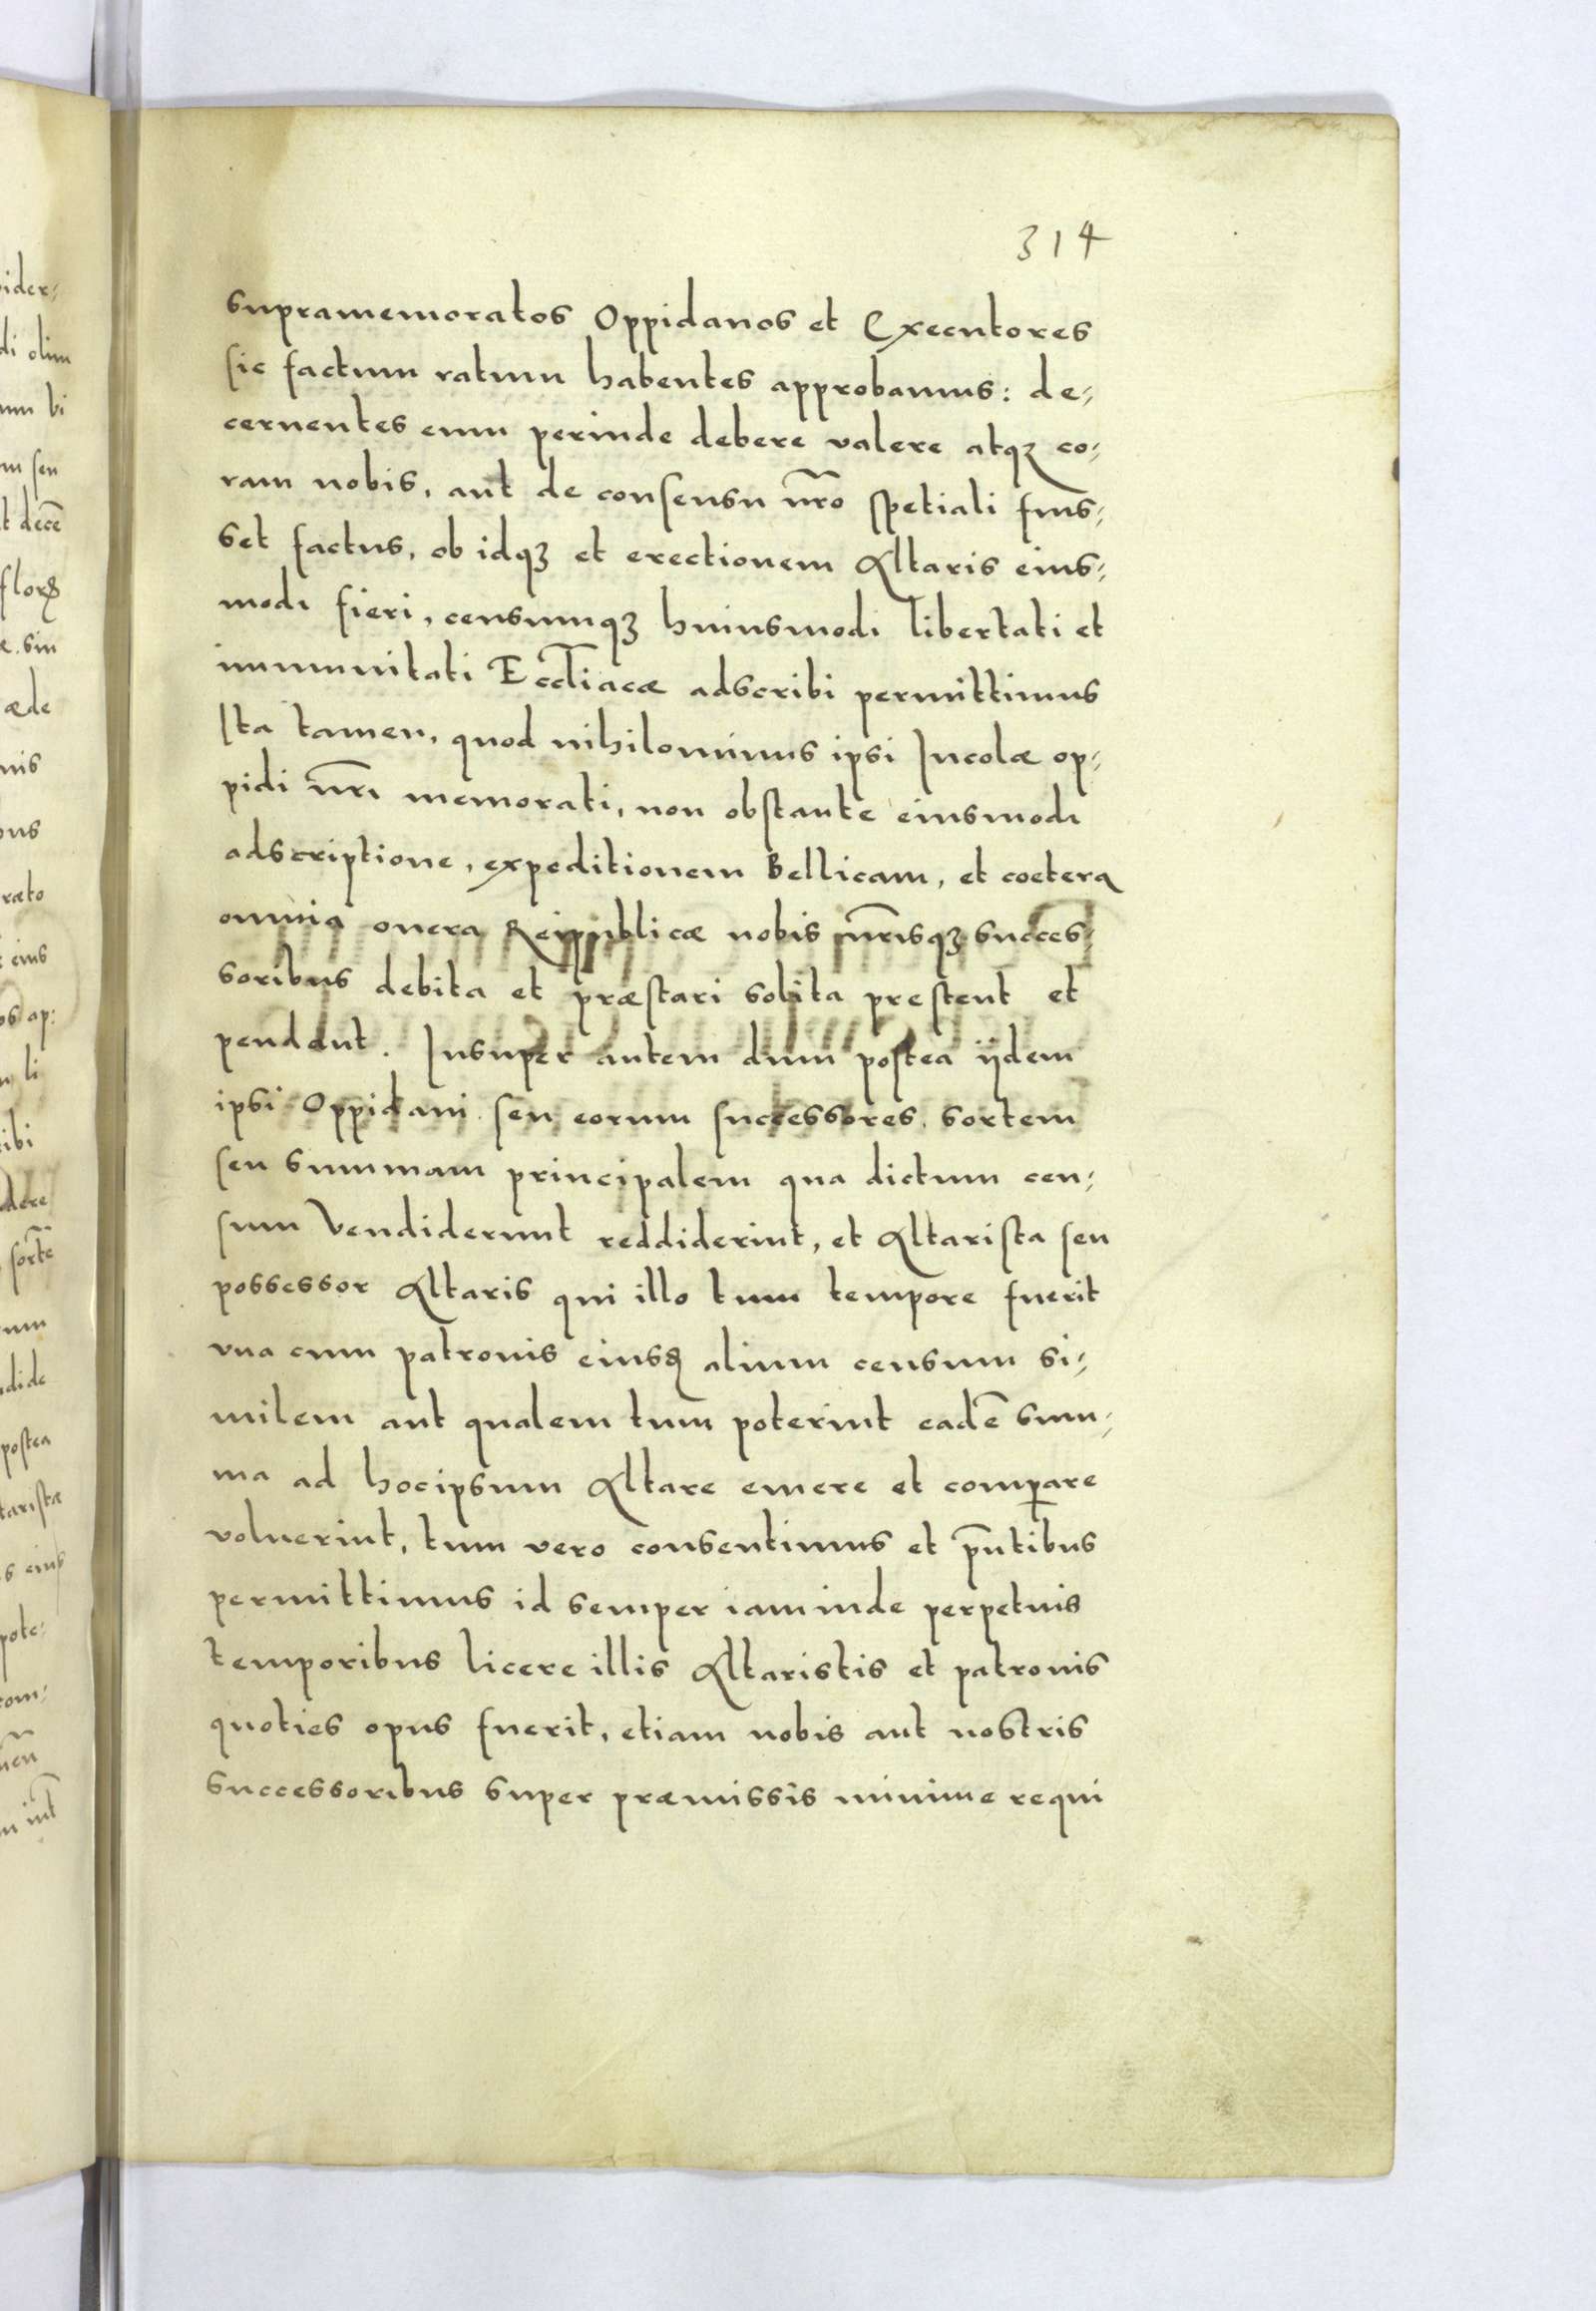 314
supramemoratos Oppidanos et Executores
sic factum ratum habentes approbamus: de⸗
cernentes eum perinde debere valere atqꝫ co⸗
ram nobis, aut de consensu nr̄o spetiali fuis⸗
set factus, ob idqꝫ et erectionem Altaris eius⸗
modi fieri, censumqꝫ huiusmodi libertati et
immunitati Eccl̄iacæ adscribi permittimus
Ita tamen, quod nihilominus ipsi Incolæ op⸗
pidi nr̄i memorati, non obstante eiusmodi
adscriptione, expeditionem Bellicam, et coetera
omnia onera Reipublicæ nobis nr̄isqꝫ succes⸗
soribus debita et præstari solita prestent et
pendant. Insuper autem dum postea ijdem
ipsi Oppidani seu eorum successores, sortem
seu summam principalem qua dictum cen⸗
sum Vendiderunt reddiderint, et Altarista seu
possessor Altaris qui illo tum tempore fuerit
vna cum patronis eiusꝺ alium censum si⸗
milem aut qualem tum poterint eadē sum⸗
ma ad hocipsum Altare emere et comꝑare
voluerint, tum vero consentimus et p̄ntibus
permittimus id semper iam inde perpetuis
temporibus licere illis Altaristis et patronis
quoties opus fuerit, etiam nobis aut nostris
successoribus super præmissis minime requi